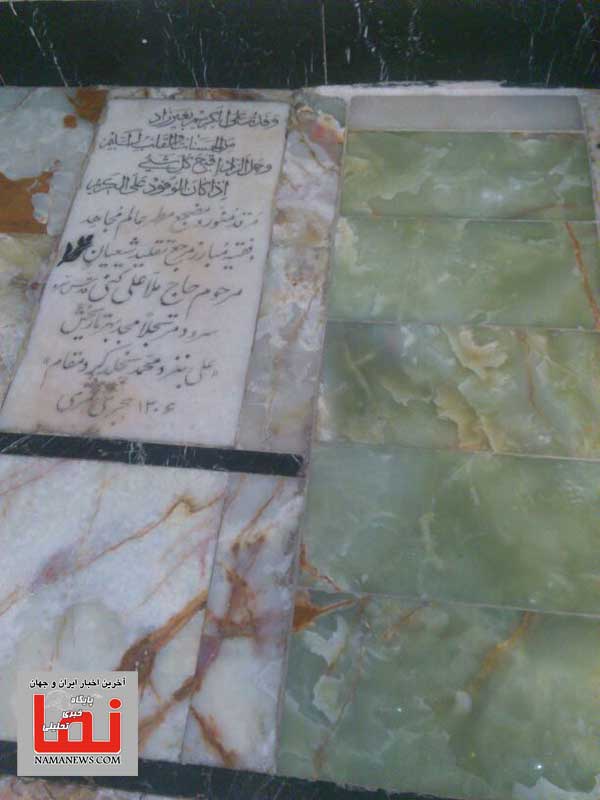 وفدت علی الکریم بغیر زاد
من الحسنات والقلب السلیم
وحمل الزاد اقبح کل شیئ
اذا کان الوفود علی الکریم
مرقد منور و مضجع مطهر عالم مجاهد
فقیه مبارز مرجع تقلید شیعیان
مرحوم حاج ملا علی کنی
سرود مرتجلا مجد بهر تاریخش
«علی بنزد محمد بخلد کرد مقام»
۱۳۰۶ هجری قمری
آخرین اخبار ایران و جهان
نما
پایگاه
خبری
تحلیلی
NAMANEWS.COM